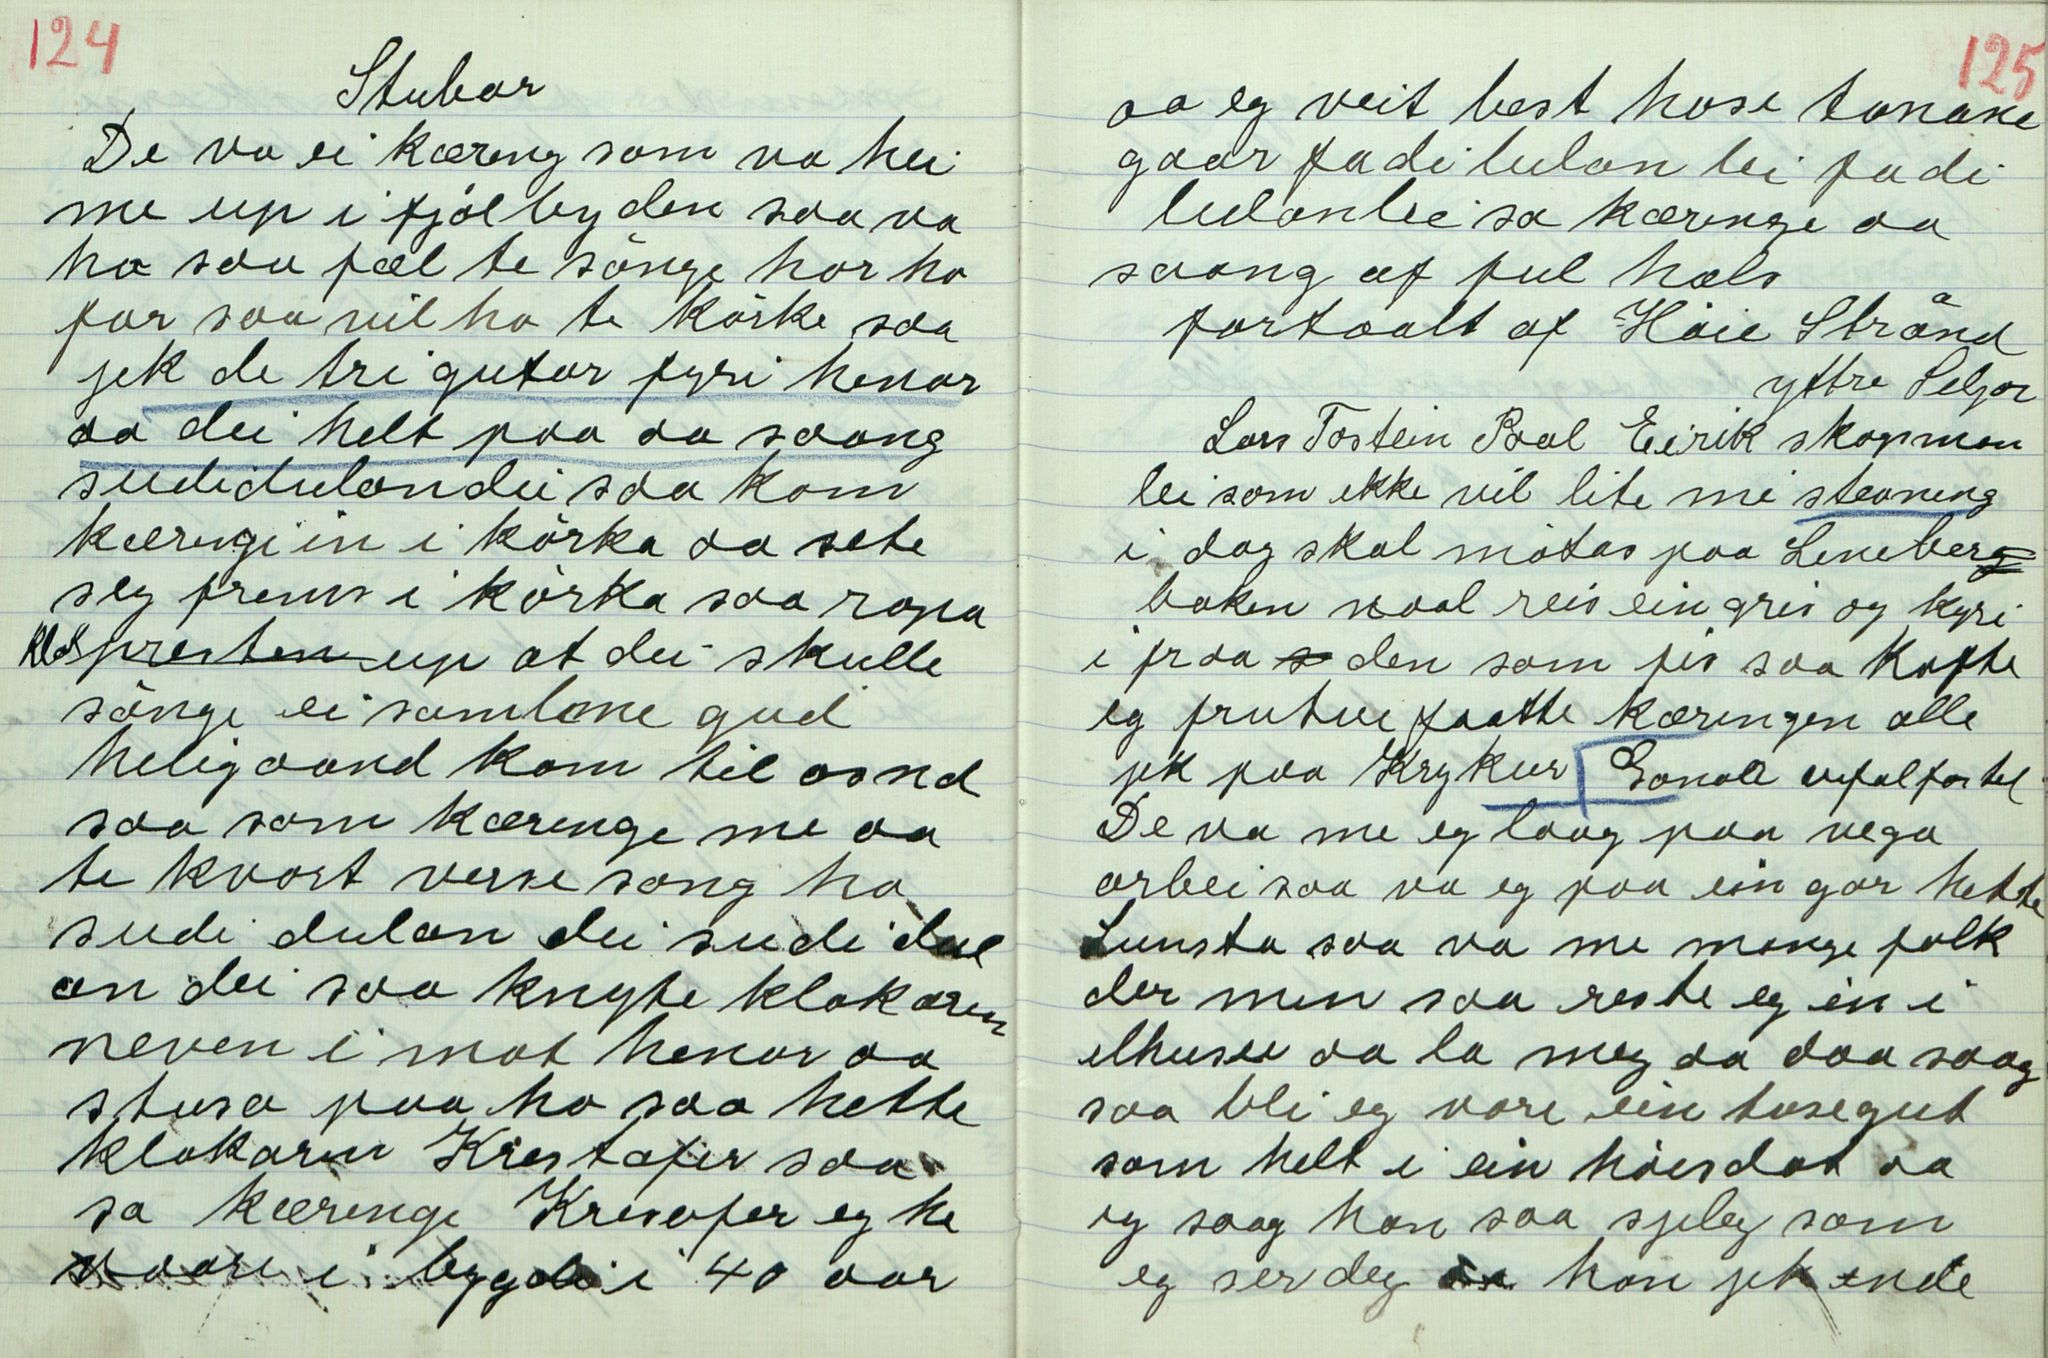 124
Stubar
De va ei kæreng som va hei
me up i fjölbyden saa va
ho saa fæl te sönge hor ho
for saa vil ho te körke saa
jek de tri gutar fyri henar
aa dei helt paa aa saang
sudidulandei saa kom
kærengi in i körka aa sete
seg frems i körka saa ropa
klok presten up at dei skulle
sönge ei samlme gud
heligaand kom til osnd
saa som kærenge me aa
te kvort verse song ho
sudi dulan dei sudi dul
an dei saa knyte klokaren
neven i mot henar aa
stusa paa ho saa hette
klokaren Krestofer saa
sa kærenge Kresofer eg he
vaare i bygdi i 40 aar
125
aa eg veit best hose tonane
gaar fadi lulan lei fadi
lulanlei sa kærenge aa
saang af ful hals
fortaalt af Håie Strånd
yttre Seljor
Lars Tostein Paal Eirik skapmen
lei som ikke vil lite mi stevneng
i dag skal mötas paa Leneberg
baken naal reis ein gris og kyri
i fraa den som fis saa kafte
eg frutue faatte kæringen alle
jek paa Krykur
De va me eg laag paa vega
arbei saa va eg paa ein gar hette
Lunsta saa va me mange folk
der men saa reste eg in i
elhuse aa la meg aa daa saag
saa bli eg vare ein tusegut
som helt i ein höisdot aa
eg saag han saa sjeleg som
eg ser deg han jek ende